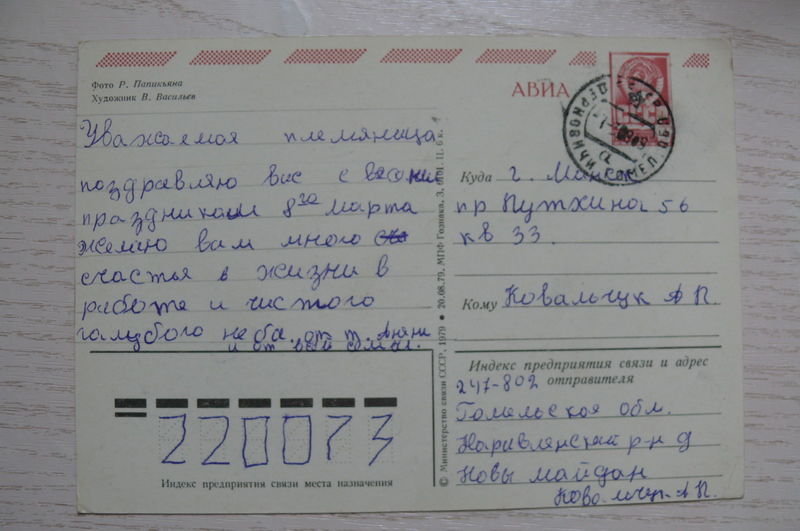 Фото Р. Папикьяна
Художник В. Васильев
АВИА
Уважаемая племяница
поздравляю вас с
праздником 8го марта
желаю вам много
счастья в жизни в
работе и чистого
галубого неба. от т.
и от всей семьи.
Куда г. Минск
пр Пушкина 56
кв 33.
Кому Ковальчук А П.
Индекс предприятия связи и адрес
отправителя
247-802
Гомельская обл.
Наровлянский р-н д
Новы майдан
Ковальчук А П.
220073
Индекс предприятия связи места назначения
© Министерство связи СССР, 1979 ● 20.08.79. МПФ Гознака. З. Ц. 6 к.